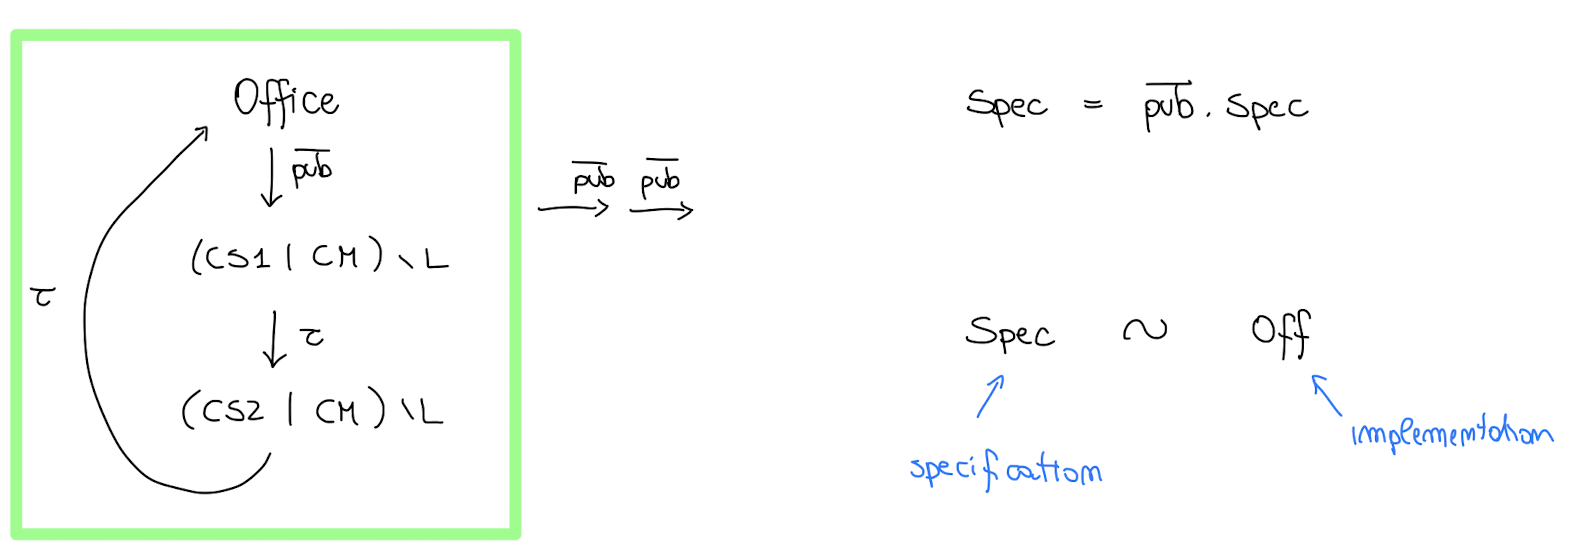 Office
p̅u̅b̅
(CS1 | CM) \ L
τ
τ
(CS2 | CM) \ L
p̅u̅b̅ p̅u̅b̅
Spec = p̅u̅b̅. Spec
Spec ~ Off
specification
implementation